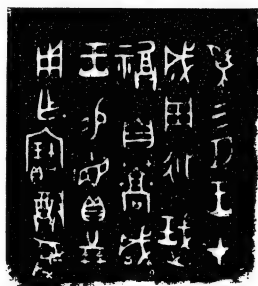 隹三月王才
成周延珷
福自蒿咸
王易德貝廿朋
用乍寶尊彝